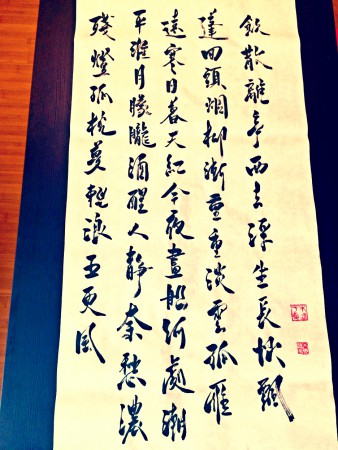 飲散離亭西去浮生長恨飄
蓬回頭烟柳漸重重淡雲孤雁
遠寒日暮天紅今夜畫船何處潮
平淮月朦朧酒醒人靜奈愁濃
殘燈孤枕夢輕浪五更風